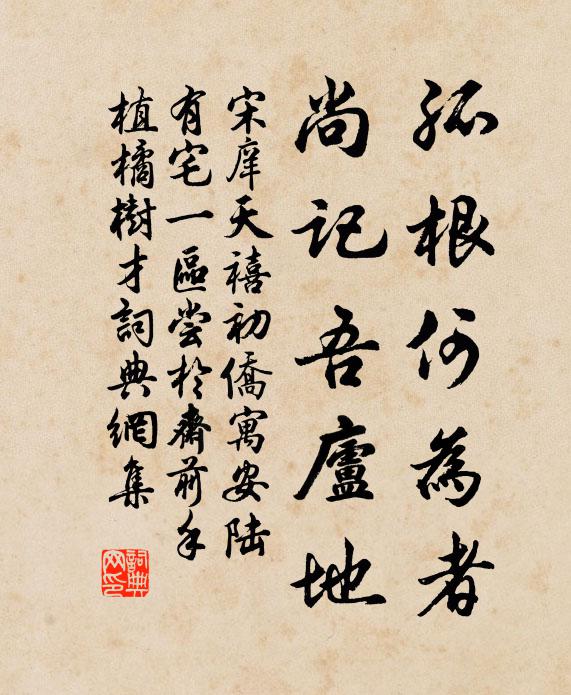 孤根何為者
尚记吾廬地
宋庠天禧初僑寓安陸
有宅一區尝於齋前手
植橘樹才詞典網集
詞典
网印